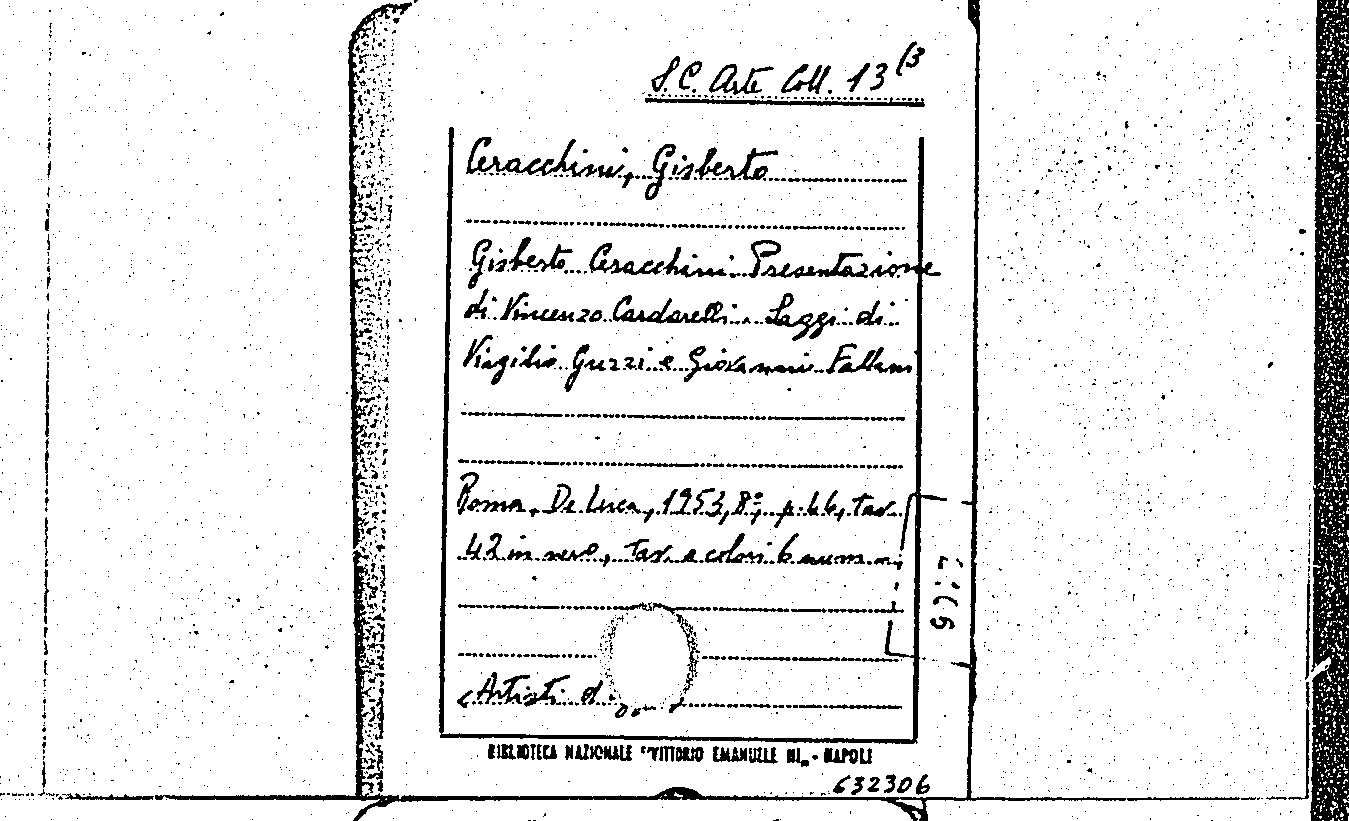 S.C. Arte Coll. 13 (3
Ceracchini, Gisberto
Gisberto Ceracchini. Presentazione
di Vincenzo Cardarelli. Saggi di
Virgilio Guzzi e Giovanni Fallani
Roma, De Luca, 1953, 8º, p. 66, tav.
42 in nero, tav. a colori 6 num. n.
(Artisti d
BIBLIOTECA NAZIONALE "VITTORIO EMANUELE III„ - NAPOLI
632306